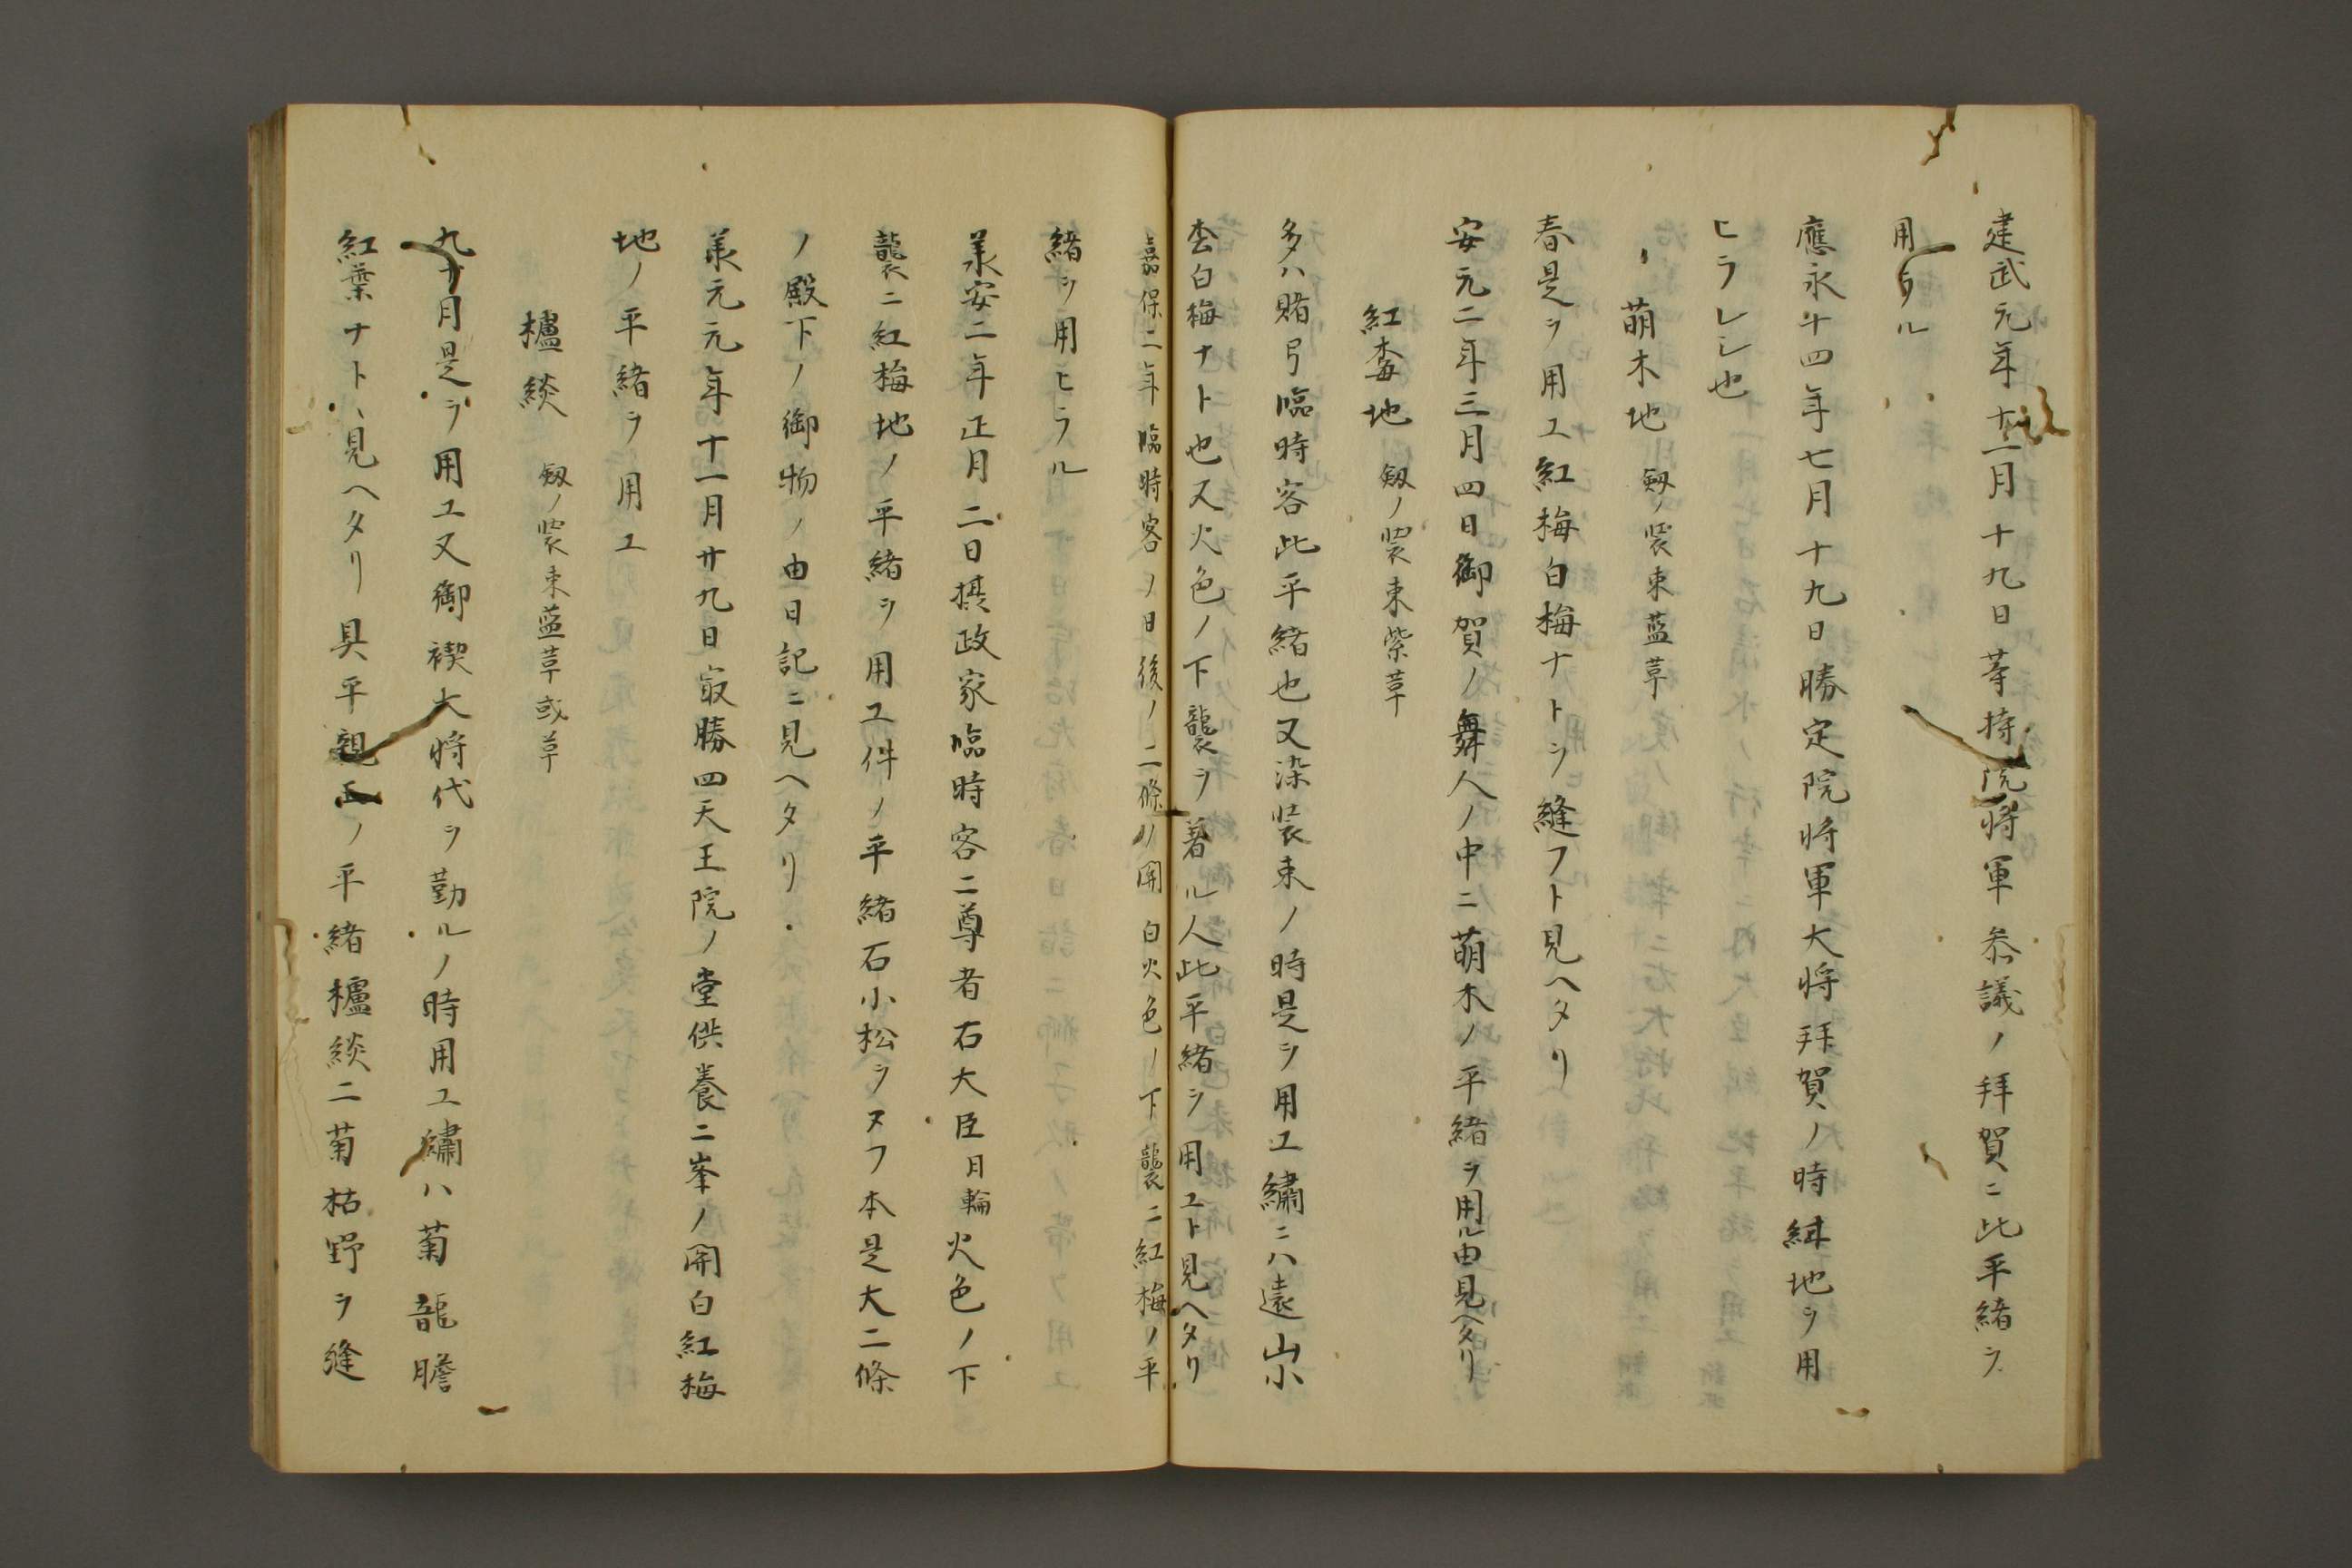 建武元年十一月十九日等持院将軍参議ノ拝賀ニ此平緒ヲ
用ラル
應永十四年七月十九日勝定院将軍大将拝賀ノ時紺地ヲ用
ヒラレシ也
萌木地 劔ノ装束藍革
春是ヲ用ユ紅梅白梅ナトヲ縫フト見ヘタリ
安元二年三月四日御賀ノ舞人ノ中ニ萌木ノ平緒ヲ用ル由見ヘタリ
紅梅地 劔ノ装束紫革
多ハ賭弓臨時客此平緒也又染装束ノ時是ヲ用ユ繍ニハ遠山小
松白梅ナト也又火色ノ下襲ヲ着ル人此平緒ヲ用ユト見ヘタリ
嘉保二年臨時客ノ日後ノ二條ノ関白火色ノ下襲ニ紅梅ノ平
緒ヲ用ヒラル
承安二年正月二日摂政家臨時客ニ尊者右大臣月輪火色ノ下
襲ニ紅梅地ノ平緒ヲ用ユ件ノ平緒石小松ヲヌフ本是大二條
ノ殿下ノ御物ノ由日記ニ見ヘタリ
承元元年十一月廿九日最勝四天王院ノ堂供養ニ峯ノ関白紅梅
地ノ平緒ヲ用ユ
櫨緂 劔ノ装束藍革或革
九十月是ヲ用ユ又御禊大将代ヲ勤ルノ時用ユ繍ハ菊龍膽
紅葉ナト見ヘタリ具平親王ノ平緒櫨緂ニ菊枯野ヲ縫